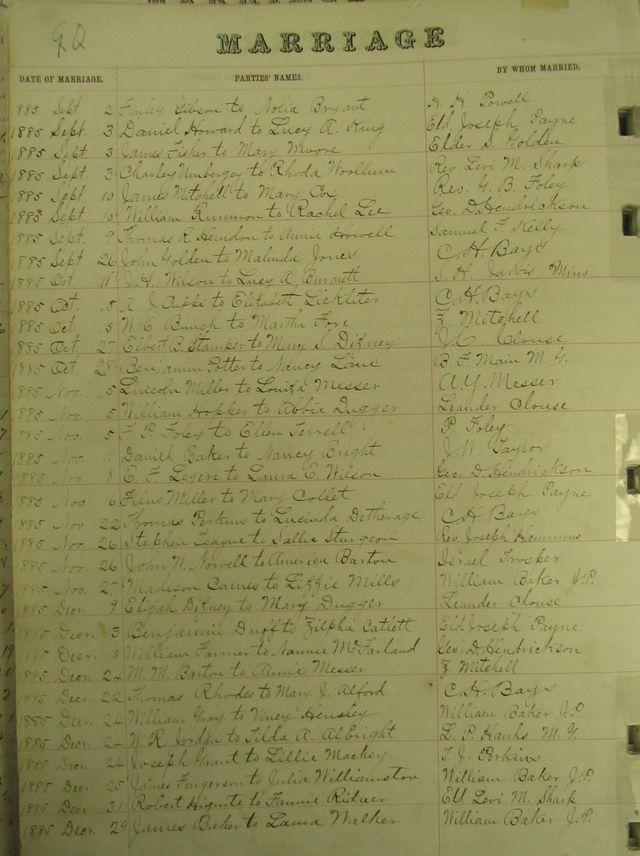 MARRIAGE
DATE OF MARRIAGE. PARTIES' NAMES. BY WHOM MARRIED,
885 Sept 2 Finley Gibson to Nolia Bryant H. H. Powell
1885 Sept 3 Daniel Howard to Lucy A. King Eld Joseph Payne
1885 Sept. 3 James Fisher to Mary Moore Elder S. Golden
1885 Sept. 3 Charley to Rhoda Woollum Rev. Levi M. Sharp
1885 Sept 10 James Mitchell to Mary Cox Rev. G. B. Foley
1885 Sept 10 William to Rachel Lee Geo. D. Hendrickson
1885 Sept. 9 Thomas R. Herndon to Annie Samuel F. Kelly
1885 Sept 26 John Golden to Malinda Jones C. H. Bays
1885 Oct. 11 J. H. Wilson to Lucy A. Burnett S. H. Mins
1885 Oct. 15 A. J. to Elizabeth C. H. Bays
1885 Oct 5 N. E. Bunch to Martha Fore Z. Mitchell
1885 Oct. 27 Elbert B. Stamper to Mary S. Dizney J. C. Clouse
1885 Oct. 28 Benjamin Potter to Nancy Lane B. F. Main M. G.
1885 Nov. 5 Lincoln Miller to Louiza Messer A. Y. Messer
1885 Nov. 5 William Hopper to Abbie Dugger Leander Clouse
1885 Nov. 5 F. P. Foley to Ellen Terrell P. Foley
1885 Nov. Daniel Baker to Nancy Bright J. W. Taylor
1885 Nov. 8 E. F. Legere to Laura E. Wilson Geo. D. Hendrickson
1885 Nov 16 Miller to Mary Collet Eld Joseph Payne
1885 Nov 22 Thomas Perkins to Lucinda Detherage C. H. Bays
1885 Nov. 26 Stephen to Sallie Sturgeon Rev. Joseph Hemmons
1885 Nov. 26 John W. Norvell to America Barton Israel Trosper
1885 Nov. 27 Madison Carnes to Lizzie Mills William Baker J.P.
1885 Decr. 9 Elijah Dizney to Mary Dugger Leander Clouse
1885 Decr. 3 Benjamin Duff to Zilpha Catlett Eld. Joseph Payne
1885 Decr. 3 William Farmer to Nannie McFarland Geo. D. Hendrickson
1885 Decr. 24 M. M. Barton to Annie Messer Z. Mitchell
1885 Decr. 22 Thomas Rhodes to Mary J. Alford C. H. Bays
1885 Decr. 24 William Gray to Viney Hensley William Baker J.P.
1885 Decr. 24 W. R. Jordan to Tilda A. Albright L. P. Hanks M. G
1885 Decr. 24 Joseph Grant to Lillie Mackey T. J. Perkins
1885 Decr. 25 James to Julia Williamston William Baker J.P.
1885 Decr. 31 Robert Hignite to Fannie Ridner Eld Levi M. Sharp
1885 Decr. 29 James Baker to Laura Walker William Baker J.P.